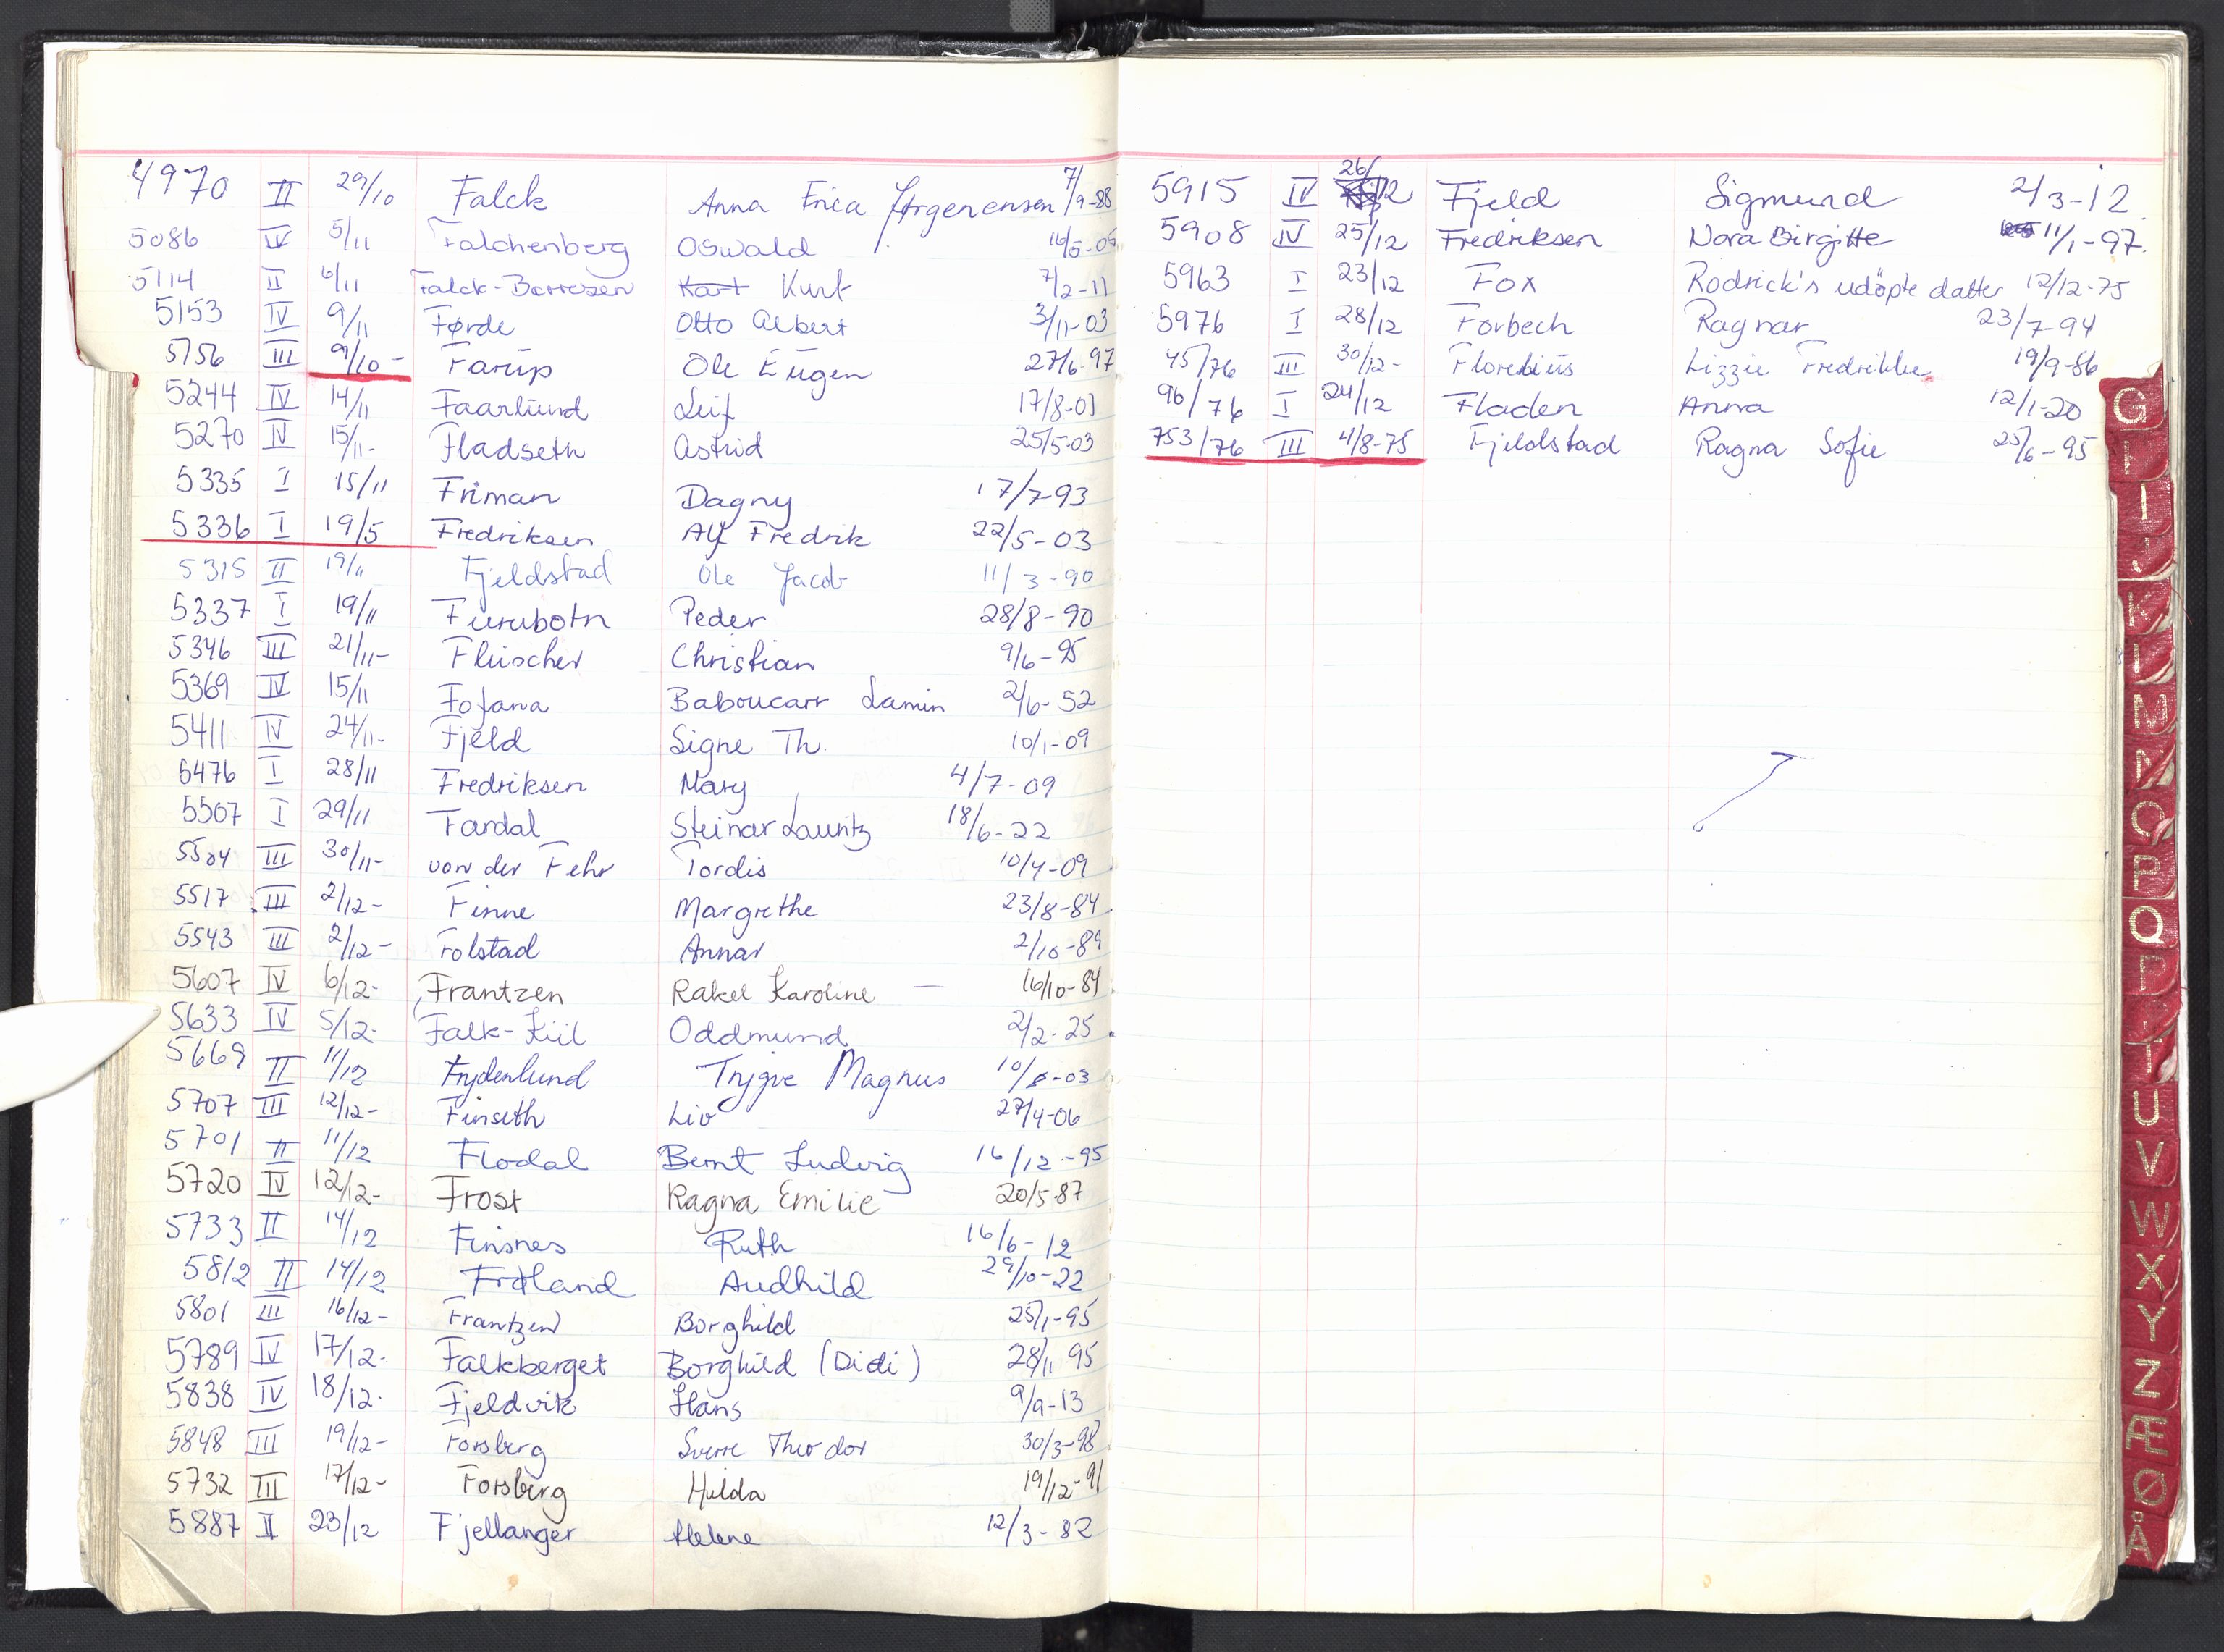 4970 II 29/10 Falck Anna Erica Jørgenensen 7/9-88
5086 IV 5/11 Falchenberg Oswald 16/5-05
5114 II 6/11 Falck-Borresen Kurt 7/2-11
5153 IV 9/11 Førde Otto Albert 3/11-03
5156 III 9/10- Farup Ole Eugen 27/6-97
5244 IV 14/11 Faarlund Leif 17/8-01
5270 IV 15/11- Fladseth Astrid 25/5-03
5335 I 15/11 Friman Dagny 17/7-93
5336 I 19/5 Fredriksen Alf Fredrik 22/5-03
5315 II 19/11 Fjeldstad Ole Jacob 11/3-90
5337 I 19/11 Furubotn Peder 28/8-90
5346 III 21/11- Fleischer Christian 9/6-95
5369 IV 15/11 Fofana Baboucarr Lamin 2/6-52
5411 IV 24/11- Fjeld Signe Th. 10/1-09
5476 I 28/11 Fredriksen Mary 4/7-09
5507 I 29/11 Fardal Steinar Lauritz 18/6-22
5504 III 30/11- von der Fehr Tordis 10/4-09
5517 III 2/12- Finne Margrethe 23/8-84
5543 III 2/12- Folstad Annar 2/10-89
5607 IV 6/12- Frantzen Rakel Karoline 16/10-84
5633 IV 5/12- Falk-Kiil Oddmund 2/2-25
5669 II 11/12 Frydenlund Trygve Magnus 10/8-03
5707 III 12/12- Finseth Liv 27/4-06
5701 II 11/12 Flodal Bernt Ludvig 16/12-95
5720 IV 12/12- Frost Ragna Emilie 20/5-87
5733 II 14/12 Finsnes Ruth 16/6-12
5812 II 14/12 Frøland Audhild 29/10-22
5801 III 16/12- Frantzen Borghild 25/1-95
5789 IV 17/12- Falkberget Borghild (Didi) 28/11 95
5838 IV 18/12- Fjeldvik Hans 9/9-13
5848 III 19/12- Forsberg Sverre Theodor 30/3-98
5732 III 17/12- Forsberg Hilda 19/12-91
5887 II 23/12 Fjellanger Helene 12/3-82
5915 IV 26/12 Fjeld Sigmund 2/3-12
5908 IV 25/12 Fredriksen Nora Birgitte 11/1-97
5963 I 23/12 Fox Rodrick's udöpte datter 12/12-75
5976 I 28/12 Forbech Ragnar 23/7-94
45/76 III 30/12- Florelius Lizzie Fredrikke 19/9-86
96/76 I 24/12 Fladen Anna 12/1-20
753/76 III 4/8-75 Fjeldstad Ragna Sofie 25/6-95
G
I
J
K
L
M
N
O
P
Q
R
T
U
V
W
X
Y
Z
Æ
Ø
Å